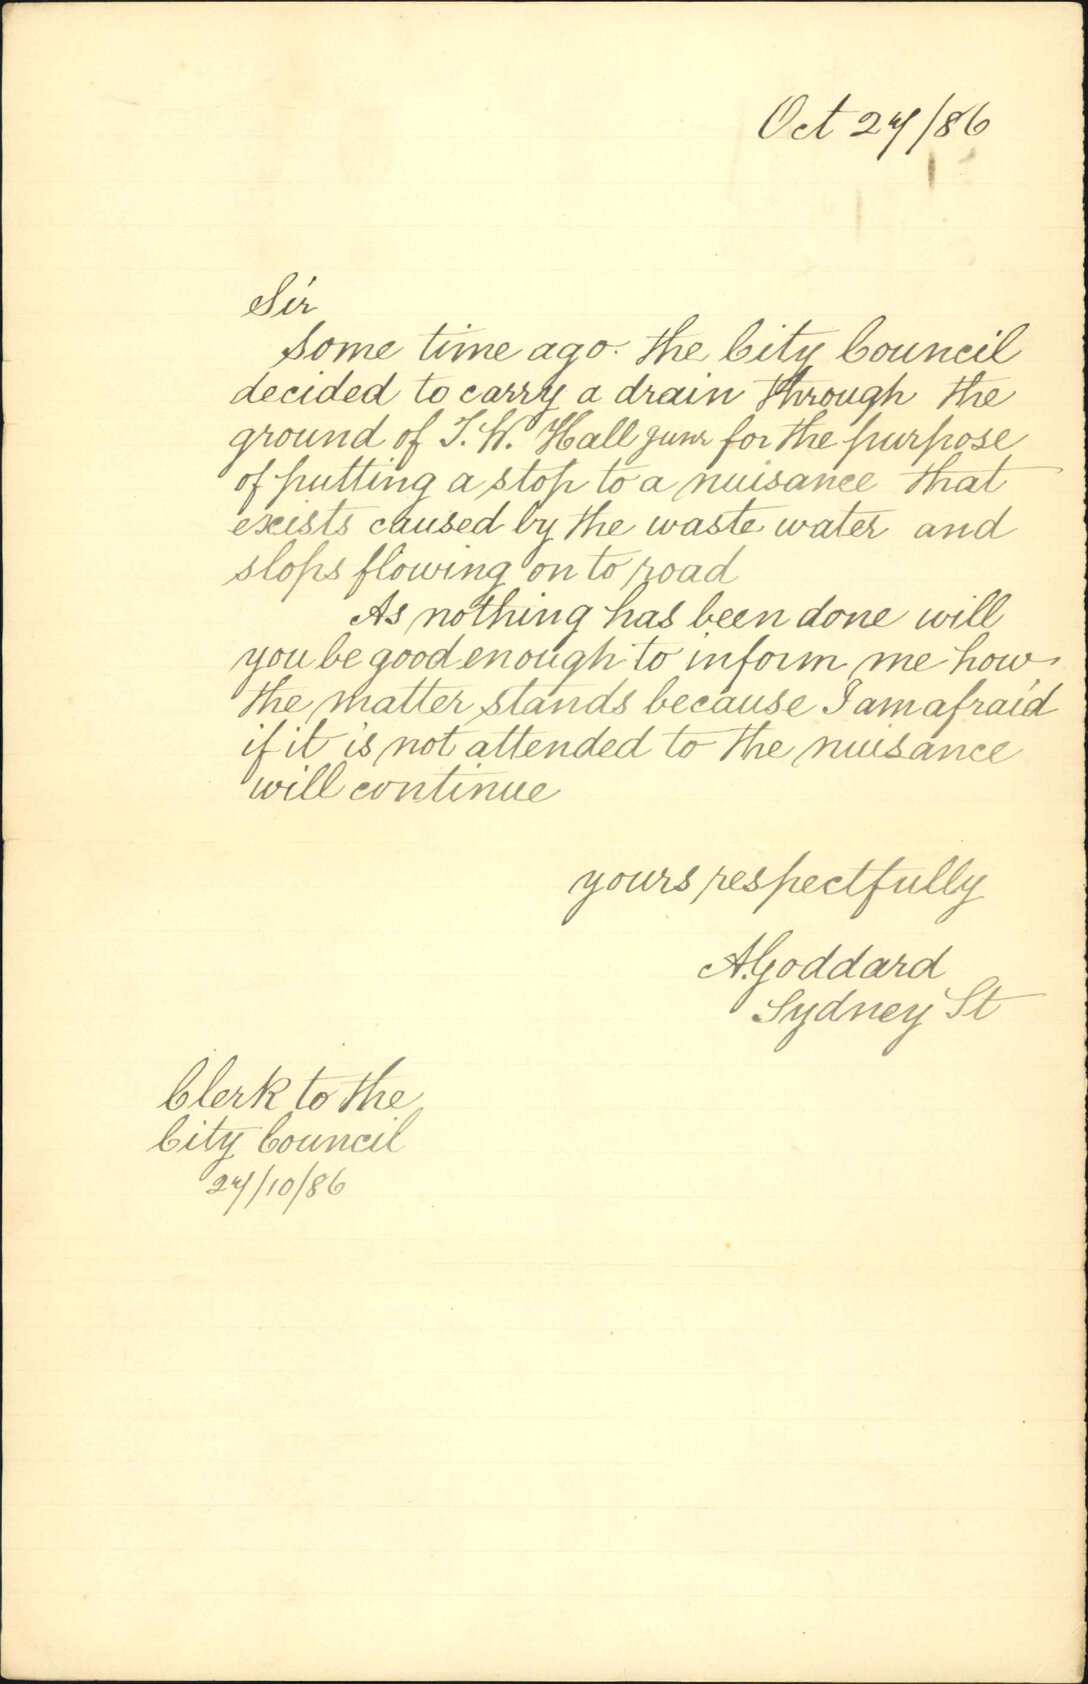 Oct 27/86
Sir
Some time ago. the City Council
decided to carry a drain through the
ground of T. W. Hall Junr for the purpose
of putting a stop to a nuisance that
exists caused by the waste water and
slops flowing on to road
As nothing has been done will
you be good enough to inform me how
the matter stands because I am afraid
if it is not attended to the nuisance
will continue
yours respectfully
A. Goddard
Sydney St
Clerk to the
City Council
27/10/86